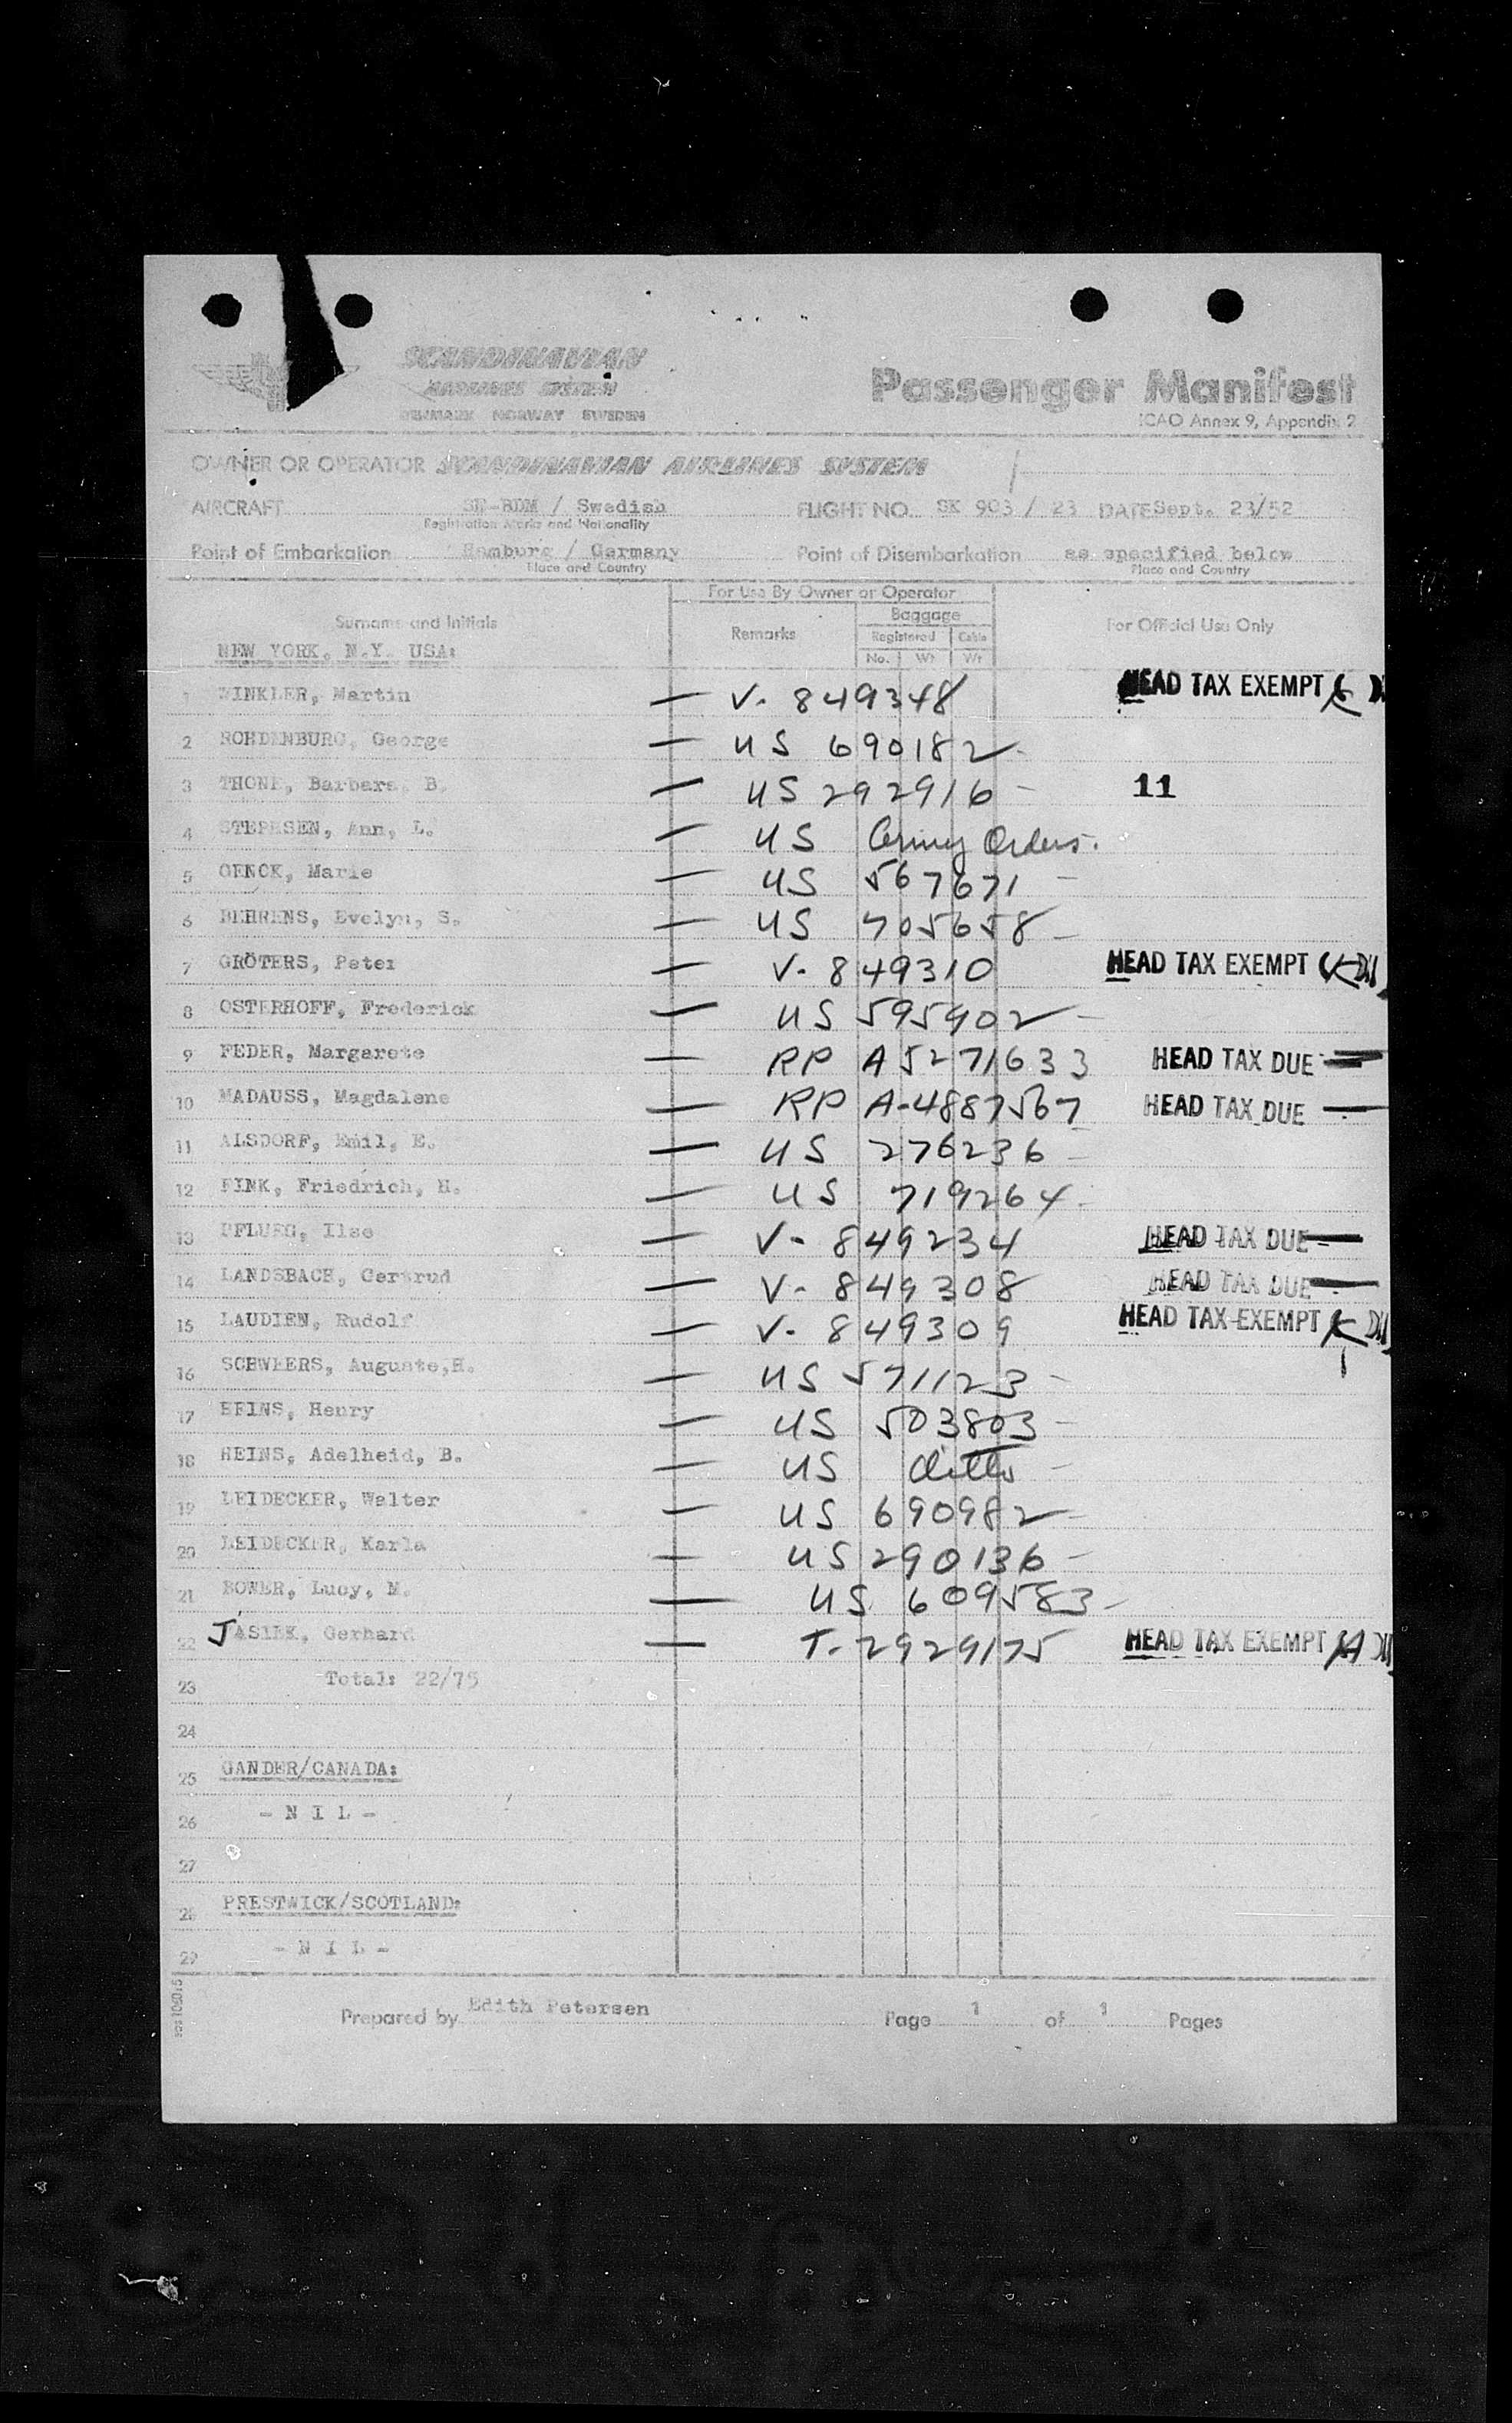 SCANDINAVIAN
AIRLINES SYSTEM
DENMARK NORWAY SWEDEN
Passenger Manifest
ICAO Annex 9, Appendix 2
OWNER OR OPERATOR SCANDINAVIAN AIRLINES SYSTEM
AIRCRAFT SE-BDM / Swedish FLIGHT NO. SK 903 / 23 DATE Sept. 23/52
Registration Marks and Nationality
Point of Embarkation Hamburg / Germany Point of Disembarkation as specified below
Place and Country Place and Country
For Use By Owner or Operator
Surname and Initials Remarks Baggage For Official Use Only
Registered Cabin
No. Wt Wt
NEW YORK, N.Y. USA:
1 WINKLER, Martin — V- 849348 HEAD TAX EXEMPT
2 ROHDENBURG, George — US 690182 -
3 THONE, Barbara, B. — US 292916 - 11
4 STEPHSEN, Ann, L. — US Army Orders.
5 OENCK, Marie — US 567671 -
6 BEHRENS, Evelyn, S. — US 705658 -
7 GRÖTERS, Peter — V- 849310 HEAD TAX EXEMPT
8 OSTERHOFF, Frederick — US 595902 -
9 FEDER, Margarete — RP A5271633 HEAD TAX DUE —
10 MADAUSS, Magdalene — RP A-4887567 HEAD TAX DUE —
11 ALSDORF, Emil, E. — US 276236 -
12 FINK, Friedrich, H. — US 719264 -
13 PFLUEG, Ilse — V- 849234 HEAD TAX DUE —
14 LANDSBACH, Gertrud — V- 849308 HEAD TAX DUE —
15 LAUDIEN, Rudolf — V- 849309 HEAD TAX EXEMPT
16 SCHWEERS, Auguste,H. — US 571123 -
17 HEINS, Henry — US 503803 -
18 HEINS, Adelheid, B. — US ditto -
19 LEIDECKER, Walter — US 690982 -
20 LEIDECKER, Karla — US 290136 -
21 BOWER, Lucy, M. — US 609583 -
22 JASIEK, Gerhard — T- 2929175 HEAD TAX EXEMPT
23 Total: 22/75
24
25 GANDER/CANADA:
26 - N I L -
27
28 PRESTWICK/SCOTLAND:
29 - N I L -
Prepared by Edith Petersen Page 1 of 1 Pages